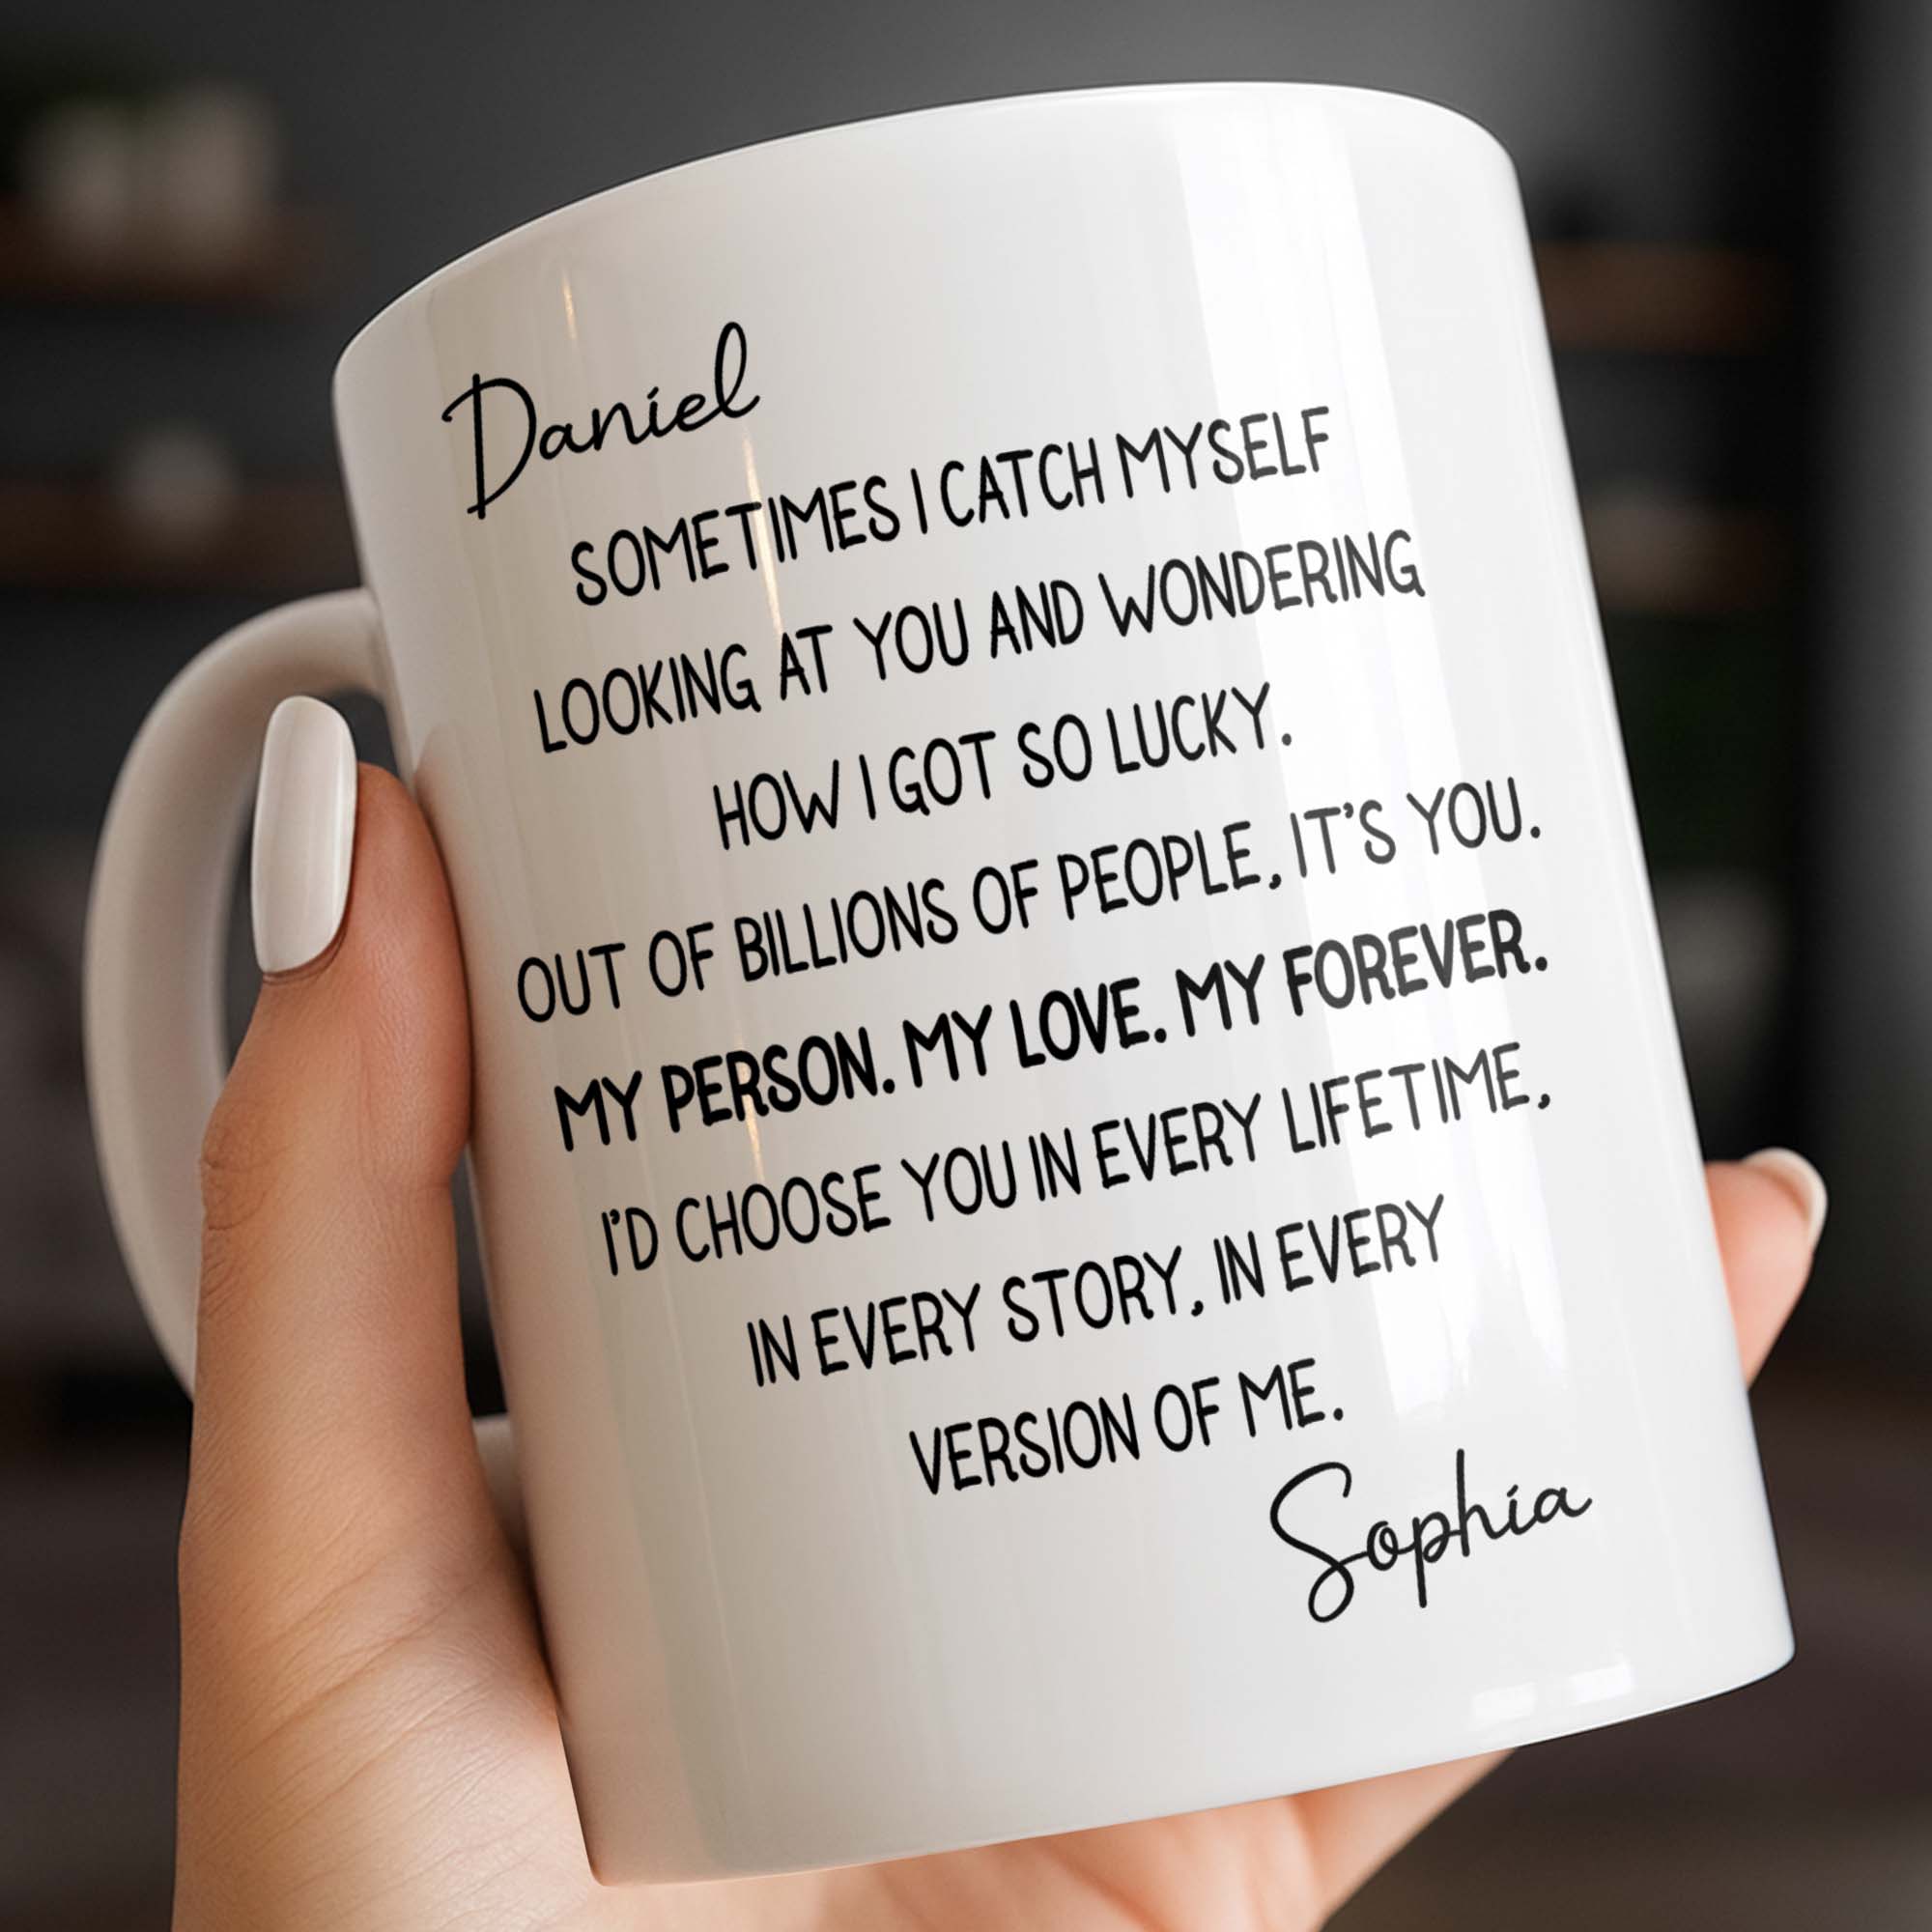 Daniel
SOMETIMES I CATCH MYSELF
LOOKING AT YOU AND WONDERING
HOW I GOT SO LUCKY.
OUT OF BILLIONS OF PEOPLE, IT'S YOU.
MY PERSON. MY LOVE. MY FOREVER.
I'D CHOOSE YOU IN EVERY LIFETIME,
IN EVERY STORY, IN EVERY
VERSION OF ME.
Sophia